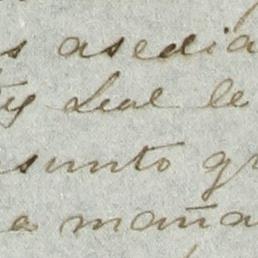 s asedia
Leal le
sunto qu
a maña